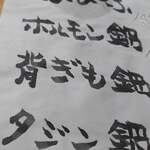 ホルモン鍋
背ぎも鍋
タジン鍋